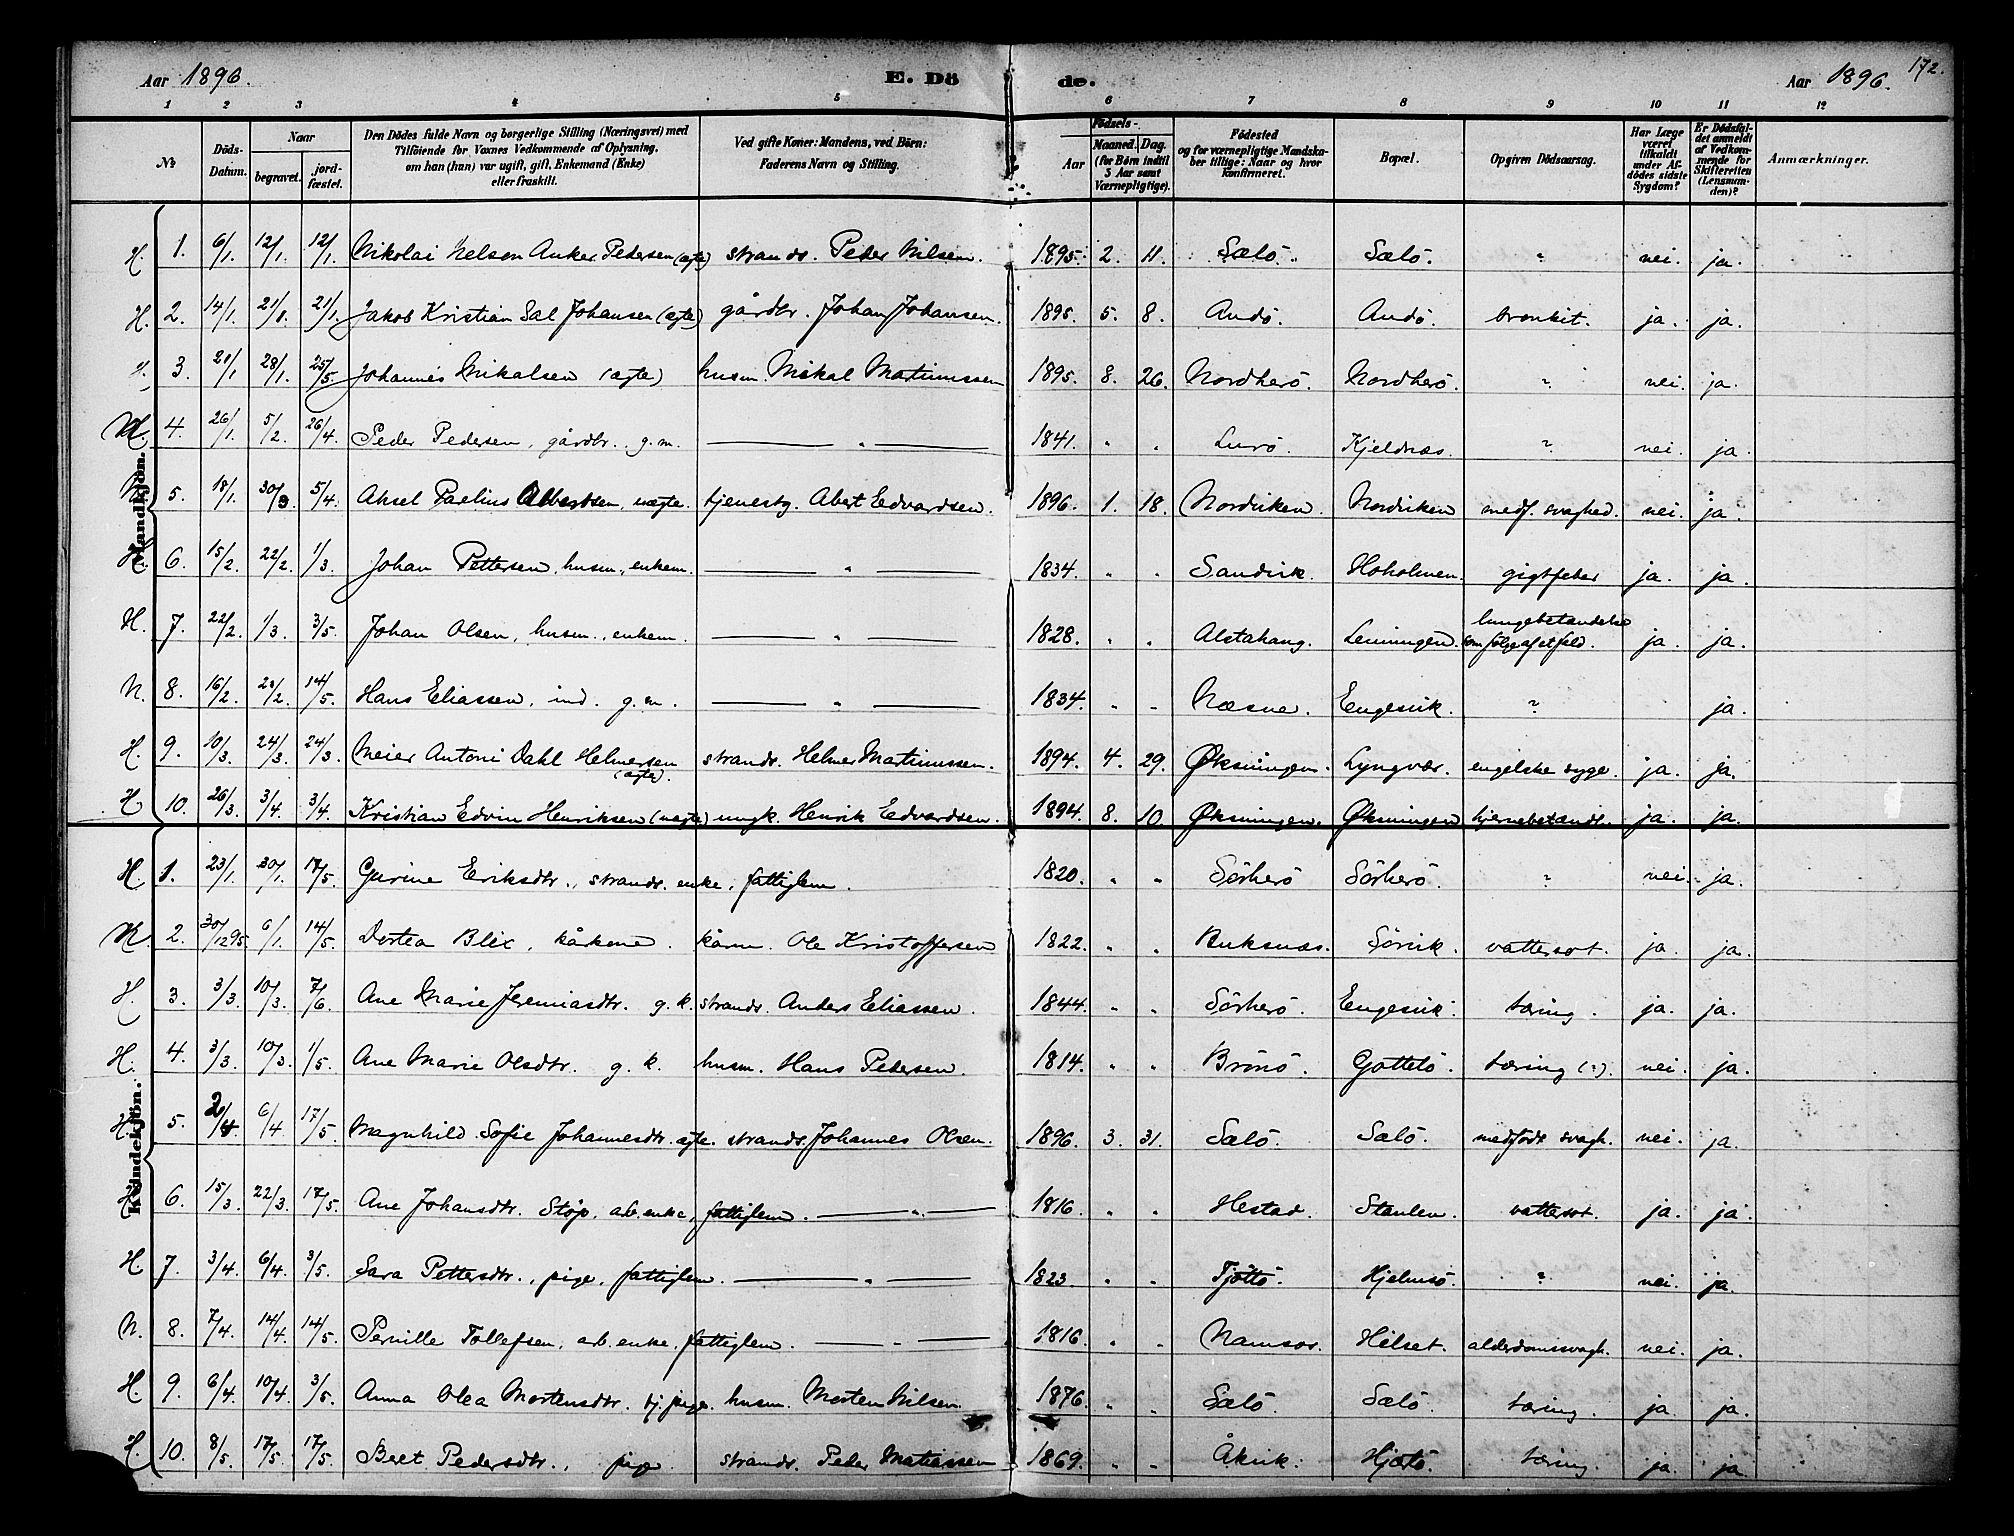 Aar 1896. E. Dö de. Aar 1896. 172.
1 2 3 4 5 6 7 8 9 10 11 12
№ Döds-Datum. Naar begravet. jordfæstet. Den Dödes fulde Navn og borgerlige Stilling (Næringsvei) med Tilföiende for Voxnes Vedkommende af Oplysning, om han (hun) var ugift, gift, Enkemand (Enke) eller fraskilt. Ved gifte Koner: Mandens, ved Börn: Faderens Navn og Stilling. Födsels- Aar Maaned. Dag. (for Börn indtil 5 Aar samt Værnepligtige). Födested og for værnepligtige Mandskaber tillige: Naar og hvor konfirmeret. Bopæl. Opgiven Dödsaarsag. Har Læge været tilkaldt under Afdödes sidste Sygdom? Er Dödsfaldet anmeldt af Vedkommende for Skifteretten (Lensmanden)? Anmærkninger.
Mandkjön.
H. 1. 6/1. 12/1. 12/1. Nikolai Nelson Anker Pedersen (ægte) strands. Peder Nilsen. 1895. 2. 11. Sælö. Sælö. " nei. ja.
H. 2. 14/1. 21/1. 21/1. Jakob Kristian Sal Johansen (ægte) gårdbr. Johan Johansen. 1895. 5. 8. Andö. Andö. bronkit. ja. ja.
3. 21/1 28/1. 25/5. Johannes Mikalsen (ægte) husm. Mikal Martinussen 1895. 8. 26. Nordherö. Nordherö. ? nei. ja.
4. 26/1. 5/2. 26/4. Peder Pedersen, gårdbr. g.m. — " — 1841. " " Lurö. Kjeldnæs. ? nei. ja.
N. 5. 18/1. 30/3 5/4. Aksel Paelius Albertsen, uægte. tjenestg. Abert Edvardsen. 1896. 1. 18. Nordviken. Nordviken medf. svaghed. nei. ja.
H. 6. 15/2. 22/2. 1/3. Johan Pettersen, husm., enkem. — " — 1834. " " Sandvik. Hoholmen. gigtfeber ja. ja.
H. 7. 22/2. 1/3. 3/5. Johan Olsen, husm., enkem. — " — 1828. " " Alstahaug. Leiningen. lungebetændelse som følge af et fald. ja ja.
N. 8. 16/2. 23/2. 14/5. Hans Eliassen, ind. g.m. — " — 1834. " " Næsne. Engesvik. ? ja.
H. 9. 10/3. 24/3. 24/3. Meier Antoni Dahl Helmersen (ægte). strands. Helmer Martinussen. 1894. 4. 29. Øksningen. Lyngvær. engelske syge. ja. ja.
H 10. 26/3. 3/4. 3/4. Kristian Edvin Henriksen (uægte) ungk. Henrik Edvardsen. 1894. 8. 10. Øksningen. Øksningen hjernebetændt. ja. ja.
Kvindekjön.
H. 1. 23/1. 30/1. 17/5. Gurine Eriksdtr., strands. enke, fattiglem. 1820. " " Sörherö Sörherö. ? nei. ja.
N. 2. 30/12 95. 6/1. 14/5. Dortea Blix, kårkone. kårm. Ole Kristoffersen 1822. " " Buksnæs. Sörvik. vattersot. ja ja.
H. 3. 3/3. 10/3. 7/6. Ane Marie Jeremiasdtr. g.k. strands. Anders Eliassen. 1844. " " Sörherö. Engesvik. tæring. ja. ja.
H. 4. 3/3. 10/3. 1/5. Ane Marie Olsdtr. g.k. husm. Hans Pedersen. 1814. " " Brönö. Gåttelö. tæring (?). nei. ja.
H. 5. 2/4. 6/4 17/5. Magnhild Sofie Johannesdtr. ægte. strands. Johannes Olsen. 1896. 3. 31. Sælö. Sælö. medfödt svagh. nei. ja.
H. 6. 15/3. 22/3. 17/5. Ane Johansdtr. Støp, arb. enke, fattiglem. — " — 1816. " " Hestad. Staulen. vattersot. ja. ja
H. 7. 3/4. 6/4. 3/5. Sara Pettersdtr., pige, fattiglem. — " — 1823. " " Tjöttö. Hjelmsö. ? nei. ja.
N. 8. 7/4. 14/4. 14/5. Pernille Tollefsen, arb. enke, fattiglem. — " — 1816. " " Namsos. Hilset. alderdomssvagh. nei. ja.
H 9. 6/4. 10/4. 3/5. Anna Olea Mortensdtr. tj. pige. husm. Morten Nilsen. 1876. " " Sælö. Sælö. tæring. ja ja.
H. 10. 8/5. 17/5. 17/5. Beret Pedersdtr., pige strands. Peder Matiassen 1869. " " Åkvik. Hjartö. tæring. ja. ja